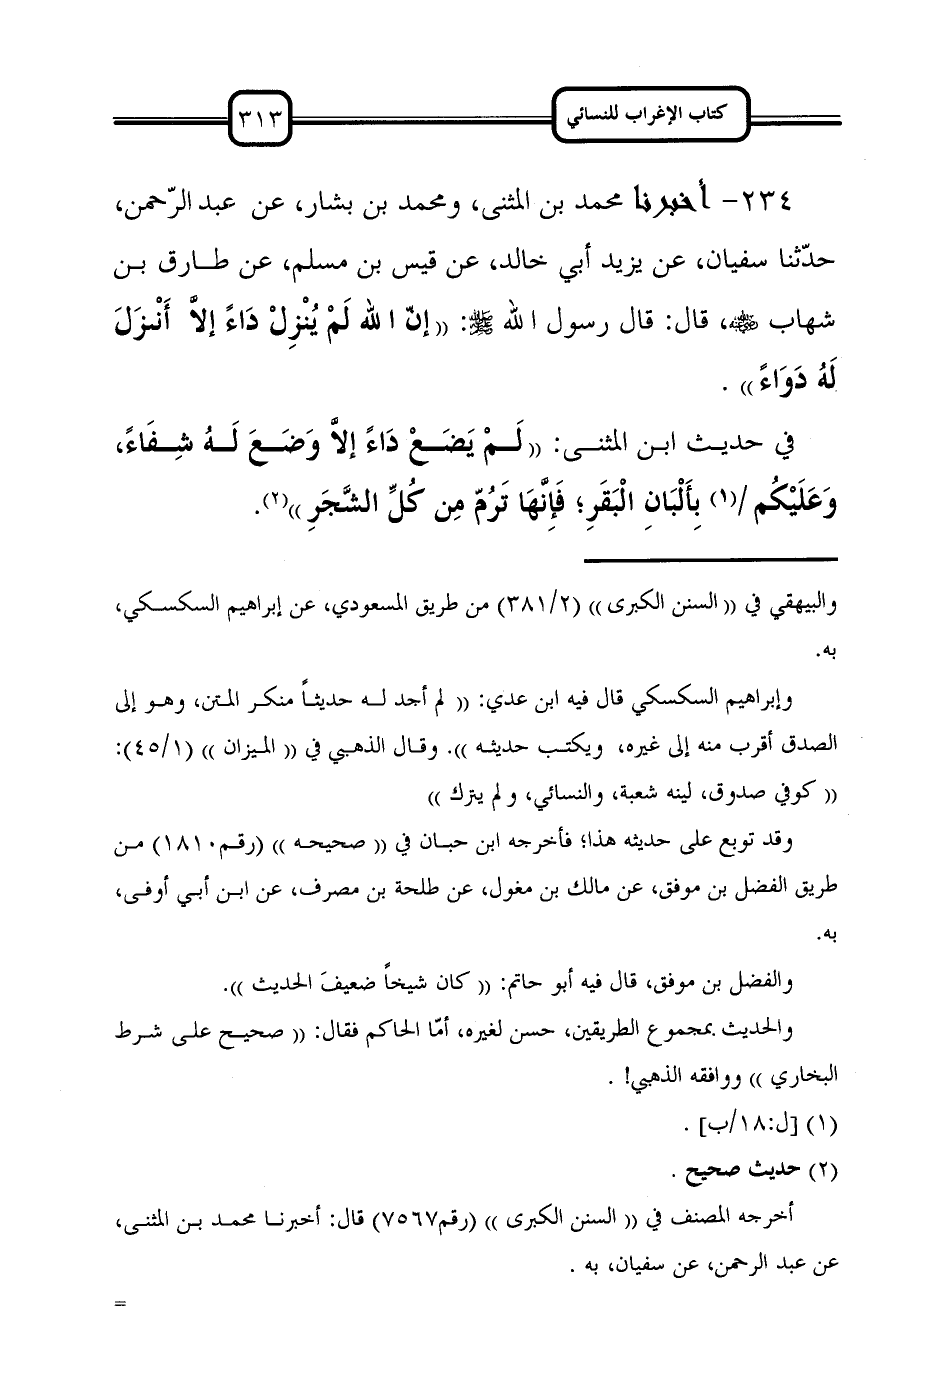 كتاب الإغراب للنسائي
٣١٣
٢٣٤- أخبرنا محمد بن المثنى، ومحمد بن بشار، عن عبد الرّحمن،
حدّثنا سفيان، عن يزيد أبي خالد، عن قيس بن مسلم، عن طارق بن
شهاب ﷺ، قال: قال رسول الله ﷺ: (( إنّ الله لَمْ يُنْزِلْ دَاءً إلاَّ أَنْزَلَ
لَهُ دَوَاءً )) .
في حديث ابن المثنى: (( لَمْ يَضَعْ دَاءً إلاَّ وَضَعَ لَهُ شِفَاءً،
وَعَلَيْكُم /(١) بِأَلْبَانِ الْبَقَرِ؛ فَإِنَّهَا تَرُمّ مِن كُلِّ الشَّجَرِ ))(٢).
والبيهقي في (( السنن الكبرى )) (٣٨١/٢) من طريق المسعودي، عن إبراهيم السكسكي،
به.
وإبراهيم السكسكي قال فيه ابن عدي: (( لم أجد له حديثاً منكر المتن، وهو إلى
الصدق أقرب منه إلى غيره، ويكتب حديثه )). وقال الذهبي في (( الميزان )) (٤٥/١):
(( كوفي صدوق، لينه شعبة، والنسائي، ولم يترك ))
وقد توبع على حديثه هذا؛ فأخرجه ابن حبان في (( صحيحه )) (رقم١٨١٠) من
طريق الفضل بن موفق، عن مالك بن مغول، عن طلحة بن مصرف، عن ابن أبي أوفى،
به.
والفضل بن موفق، قال فيه أبو حاتم: (( كان شيخاً ضعيفَ الحديث )).
والحديث بمجموع الطريقين، حسن لغيره، أمّا الحاكم فقال: (( صحيح على شرط
البخاري )) ووافقه الذهبي! .
(١) [ل:١٨/ب] .
(٢) حديث صحيح .
أخرجه المصنف في (( السنن الكبرى )) (رقم٧٥٦٧) قال: أخبرنا محمد بن المثنى،
عن عبد الرحمن، عن سفيان، به .
=